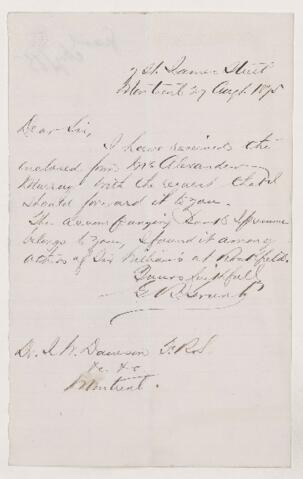 St. James Street
Montreal 27 Augt. 1875
Dear Sir,
I have received the
enclosed from Mr Alexander
Murray with the request that I
should forward it to you.
The accompanying Book I presume
belongs to you, I found it among
others of Sir William's at
Yours faithfully
G. B.
Dr. J. W. Dawson F.R.S.
&c. &c
Montreal.